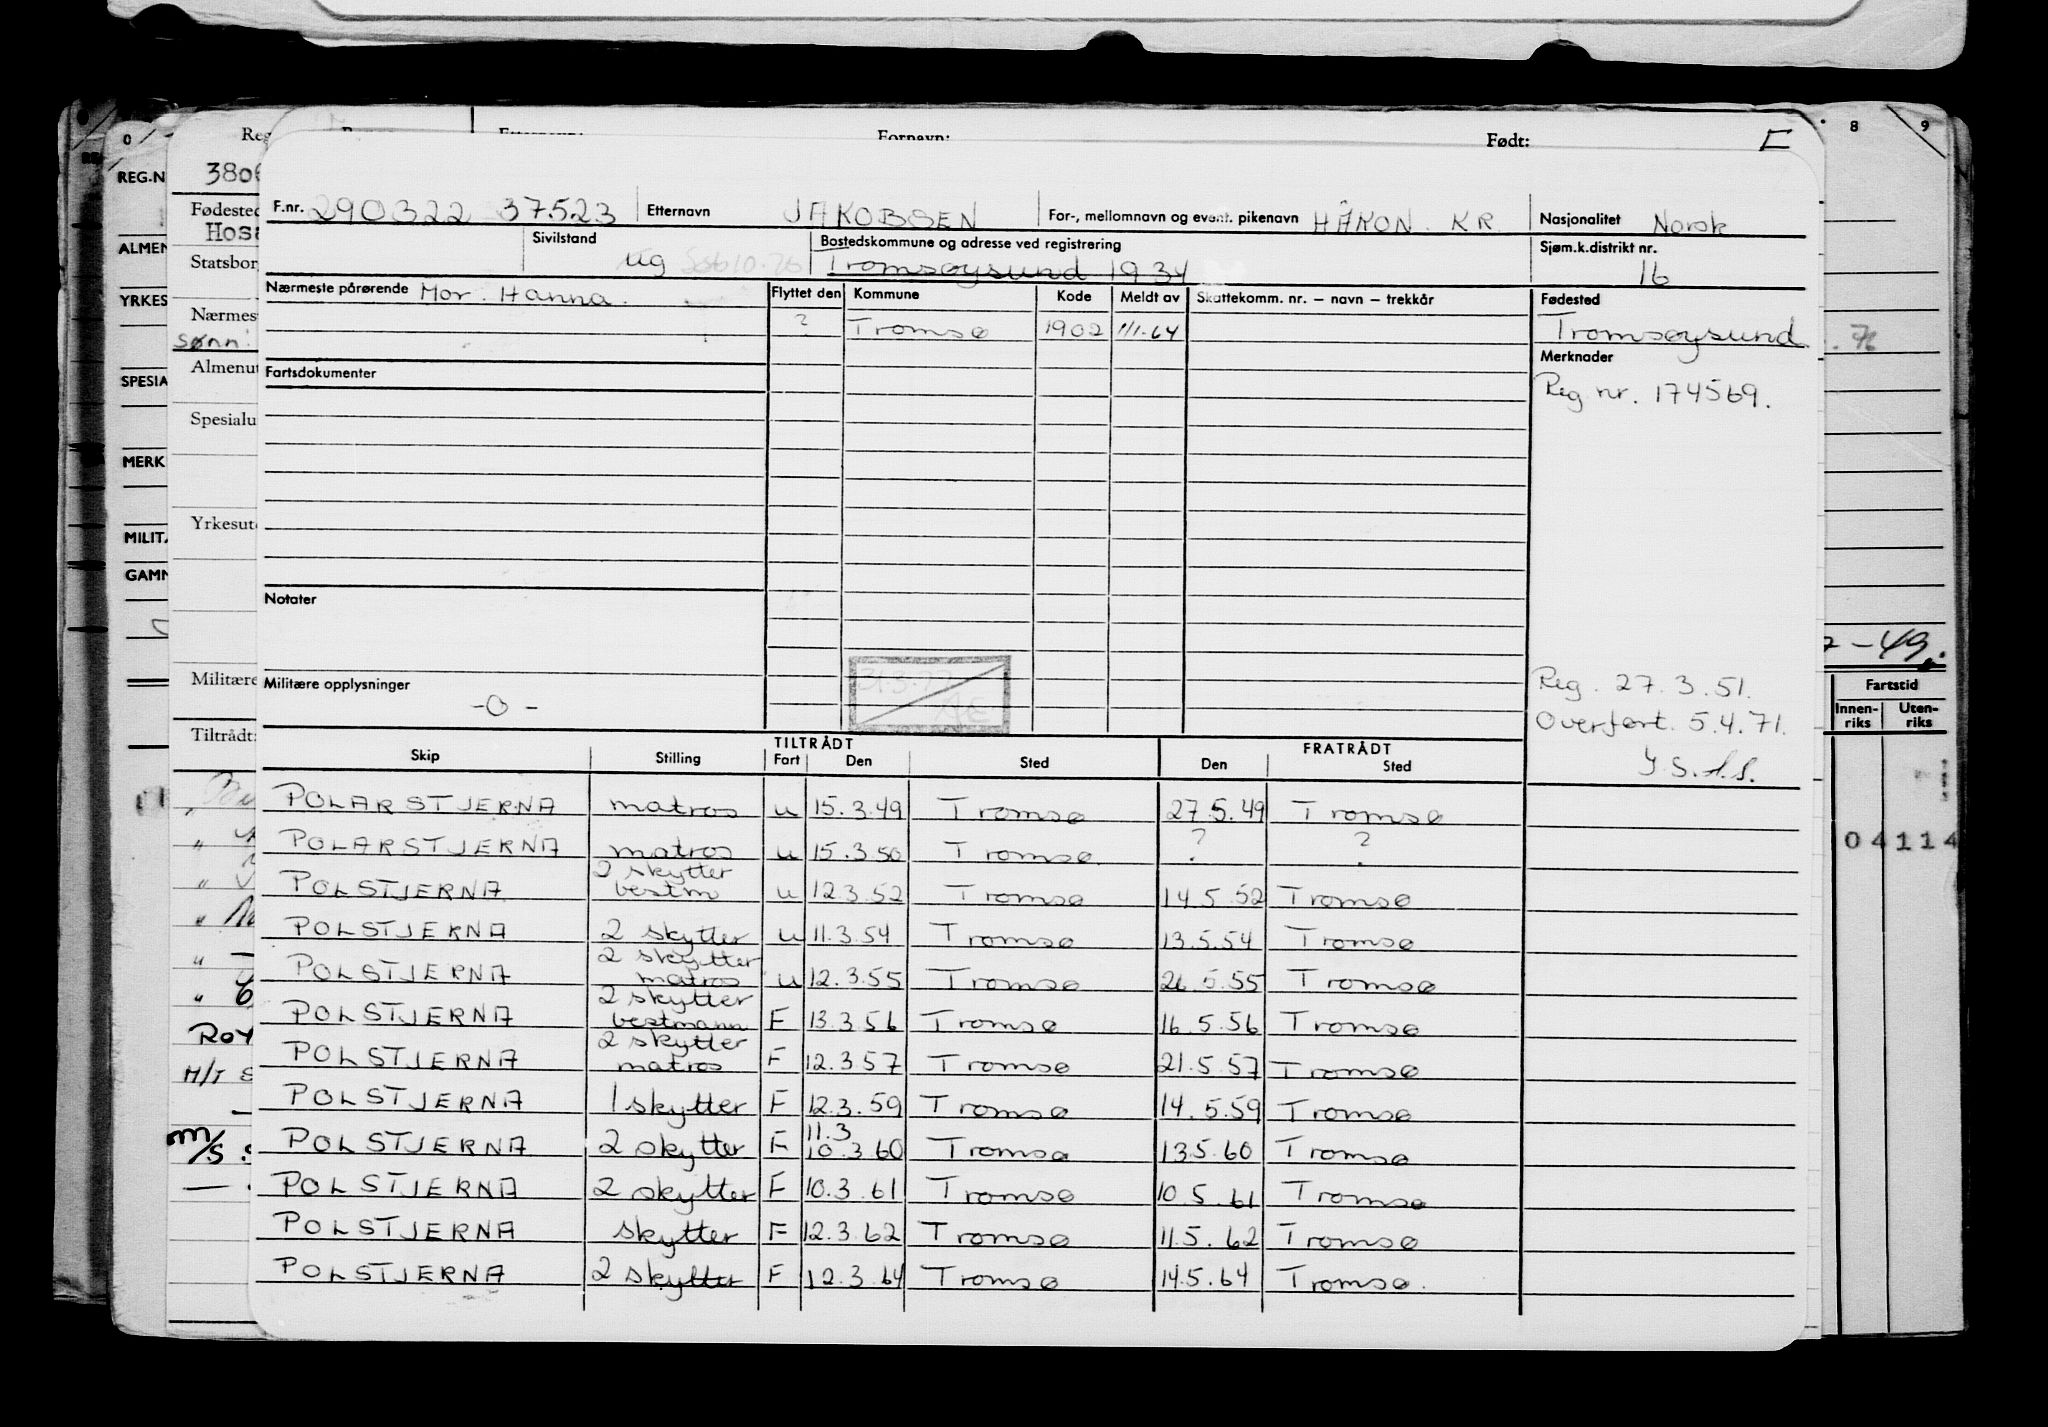 Fornavn: Født:
0 8 9
REG.N 380
F.nr. 290322 37523 Etternavn JAKOBSEN For-, mellomnavn og event. pikenavn HÅKON KR. Nasjonalitet Norsk
Sivilstand ug Bostedskommune og adresse ved registrering Tromsøysund 1934 Sjøm.k.distrikt nr. 16
Nærmeste pårørende Mor. Hanna.
Flyttet den Kommune Kode Meldt av Skattekomm. nr. – navn – trekkår
? Tromsø 1902 1/1.64
Fødested
Tromsøysund
Merknader
Reg nr. 174569.
Fartsdokumenter
Notater
Militære opplysninger
-0-
Reg. 27.3.51.
Overført. 5.4.71.
Skip Stilling TILTRÅDT Fart Den Sted FRATRÅDT Den Sted
POLARSTJERNA matros u 15.3.49 Tromsø 27.5.49 Tromsø
POLARSTJERNA matros u 15.3.50 Tromsø ? ?
POLSTJERNA 2 skytter bestm u 12.3.52 Tromsø 14.5.52 Tromsø
POLSTJERNA 2 skytter u 11.3.54 Tromsø 13.5.54 Tromsø
POLSTJERNA 2 skytter matros u 12.3.55 Tromsø 26.5.55 Tromsø
POLSTJERNA 2 skytter bestmann F 13.3.56 Tromsø 16.5.56 Tromsø
POLSTJERNA 2 skytter matros F 12.3.57 Tromsø 21.5.57 Tromsø
POLSTJERNA 1 skytter F 12.3.59 Tromsø 14.5.59 Tromsø
POLSTJERNA 2 skytter F 11.3 10.3.60 Tromsø 13.5.60 Tromsø
POLSTJERNA 2 skytter F 10.3.61 Tromsø 10.5.61 Tromsø
POLSTJERNA skytter F 12.3.62 Tromsø 11.5.62 Tromsø
POLSTJERNA 2 skytter F 12.3.64 Tromsø 14.5.64 Tromsø.
ALMEN
YRKES
SPESIA
MERK
MILIT
GAMM
Sønn:
Yrkesut
Militære
Tiltrådt:
ROY
M/T
M/S
-49.
Fartstid
Innen-riks Uten-riks
04114